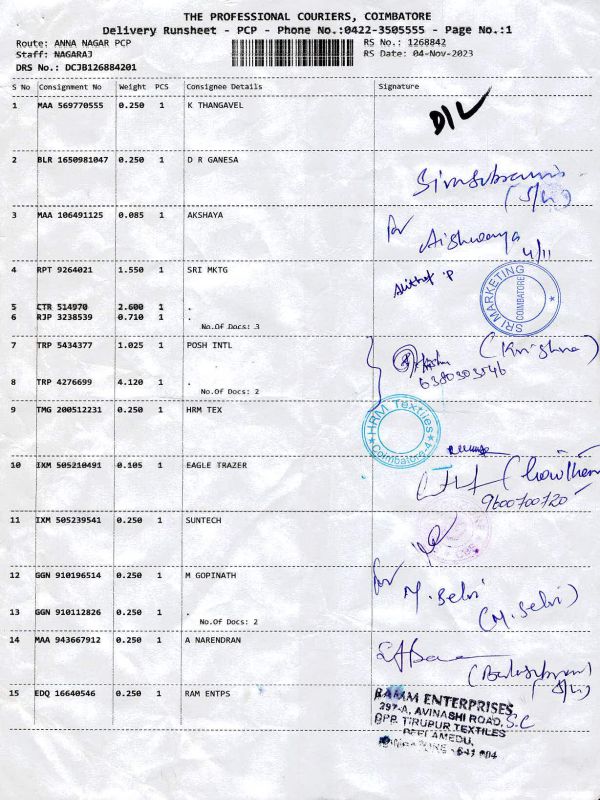 THE PROFESSIONAL COURIERS, COIMBATORE
Delivery Runsheet - PCP - Phone No.:0422-3505555 - Page No.:1
Route: ANNA NAGAR PCP RS No.: 1268842
Staff: NAGARAJ RS Date: 04-Nov-2023
DRS No.: DCJB126884201
S No Consignment No Weight PCS Consignee Details Signature
1 MAA 569770555 0.250 1 K THANGAVEL D/L
2 BLR 1650981047 0.250 1 D R GANESA
3 MAA 106491125 0.085 1 AKSHAYA for
Aishwarya
4/11
4 RPT 9264021 1.550 1 SRI MKTG
SRI MARKETING
COIMBATORE
5 CTR 514970 2.600 1 .
6 RJP 3238539 0.710 1 .
No.Of Docs: 3
7 TRP 5434377 1.025 1 POSH INTL (Krishna)
6380303546
8 TRP 4276699 4.120 1 .
No.Of Docs: 2
9 TMG 200512231 0.250 1 HRM TEX
HRM Textiles
Coimbatore-4
10 IXM 505210491 0.105 1 EAGLE TRAZER
9600700720
11 IXM 505239541 0.250 1 SUNTECH
12 GGN 910196514 0.250 1 M GOPINATH for
M. Selvi
(M. Selvi)
13 GGN 910112826 0.250 1 .
No.Of Docs: 2
14 MAA 943667912 0.250 1 A NARENDRAN
15 EDQ 16640546 0.250 1 RAM ENTPS
RAMM ENTERPRISES
297-A, AVINASHI ROAD, S.C
OPP. TIRUPUR TEXTILES
PEELAMEDU,
641 004